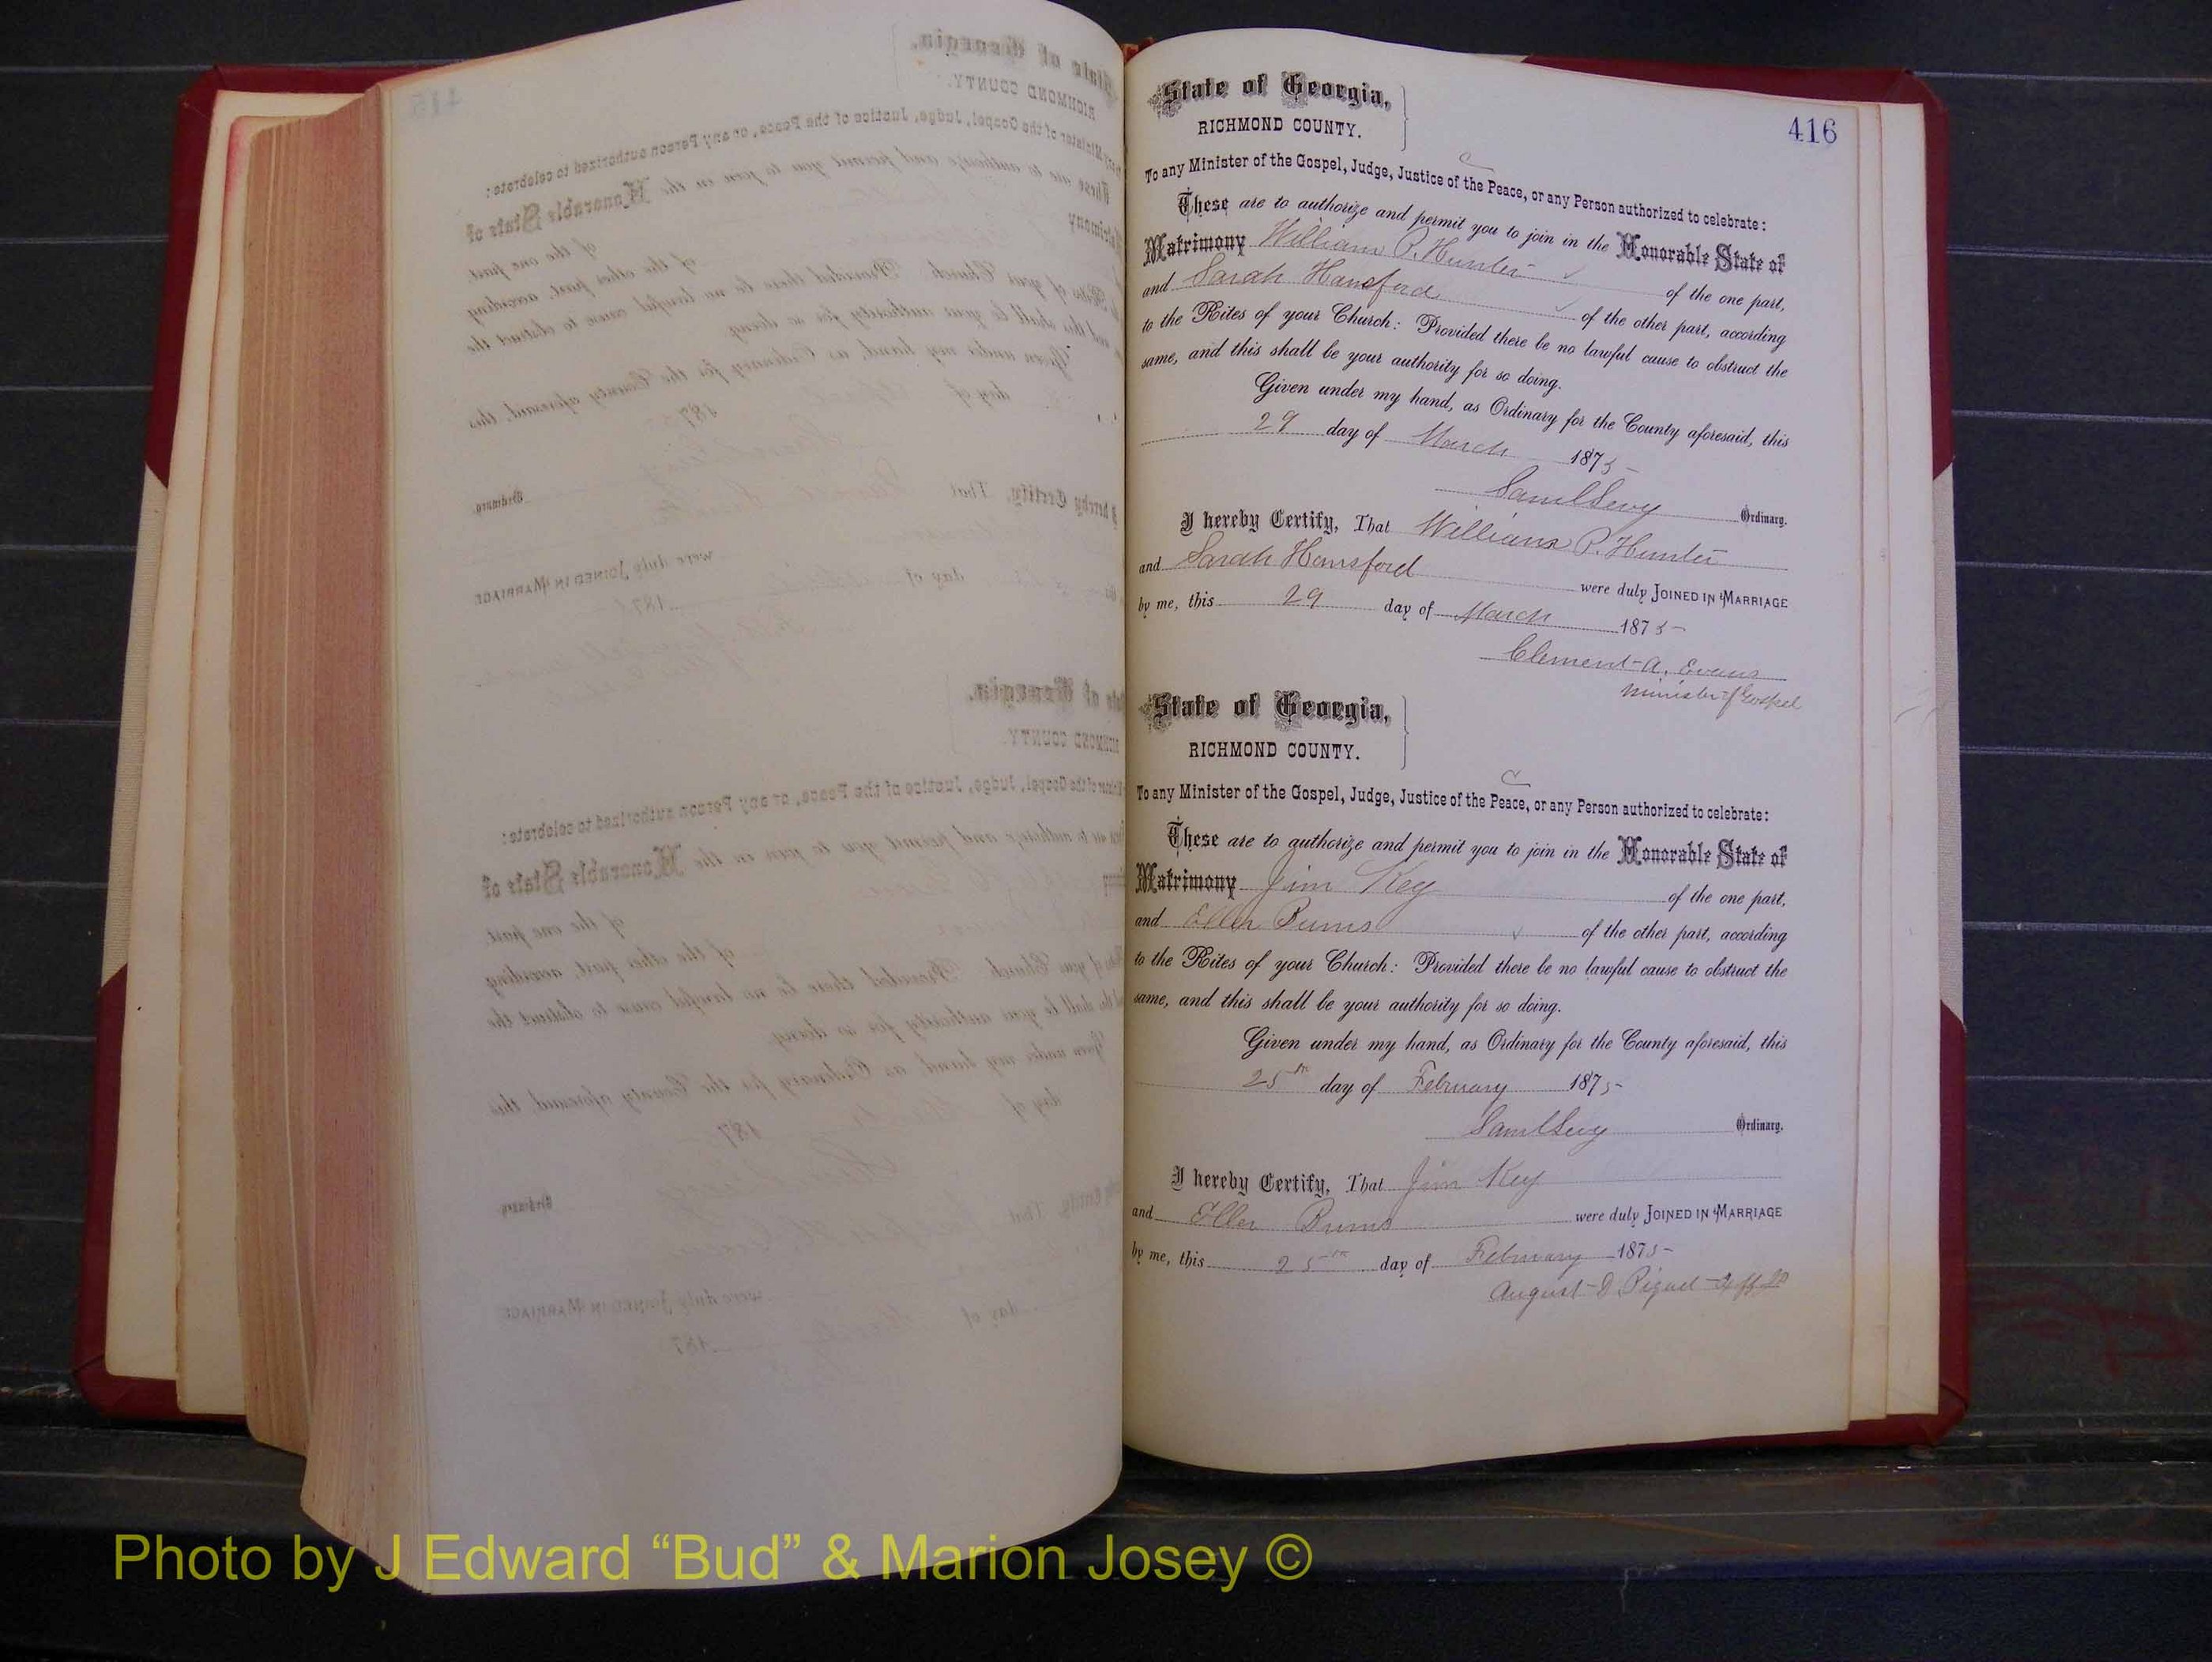 416
State of Georgia,
RICHMOND COUNTY.
C
To any Minister of the Gospel, Judge, Justice of the Peace, or any Person authorized to celebrate:
These are to authorize and permit you to join in the Honorable State of
Matrimony William P. Hunter of the one part,
and Sarah Hansford of the other part, according
to the Rites of your Church: Provided there be no lawful cause to obstruct the
same, and this shall be your authority for so doing.
Given under my hand, as Ordinary for the County aforesaid, this
29 day of March 1875
Saml Levy Ordinary.
I hereby Certify, That William P. Hunter
and Sarah Hansford were duly JOINED IN MARRIAGE
by me, this 29 day of March 1875
Clement A. Evans
Minister of Gospel
State of Georgia,
RICHMOND COUNTY.
C
To any Minister of the Gospel, Judge, Justice of the Peace, or any Person authorized to celebrate:
These are to authorize and permit you to join in the Honorable State of
Matrimony Jim Key of the one part,
and Eller Burns of the other part, according
to the Rites of your Church: Provided there be no lawful cause to obstruct the
same, and this shall be your authority for so doing.
Given under my hand, as Ordinary for the County aforesaid, this
25th day of February 1875
Saml Levy Ordinary.
I hereby Certify, That Jim Key
and Eller Burns were duly JOINED IN MARRIAGE
by me, this 25th day of February 1875
August D. Piquet
Photo by J Edward “Bud” & Marion Josey ©